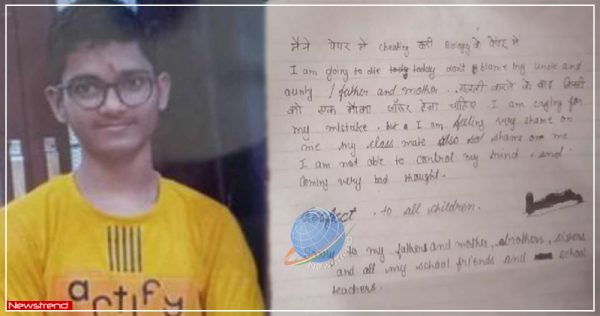 मैने पेपर में cheating करी Biology के पेपर में
I am going to die today don't blame my uncle and
aunty / father and mother. गलती करने के बाद किसी
को एक मौका जरूर देना चाहिए I am crying for
my mistake. but I am feeling very shame on
me my class mate also shame on me
I am not able to control my mind. and
coming very bad thought.
to all children.
Sorry to my father and mother, brothers, sisters
and all my school friends and school
teachers.
artify
Newstrend